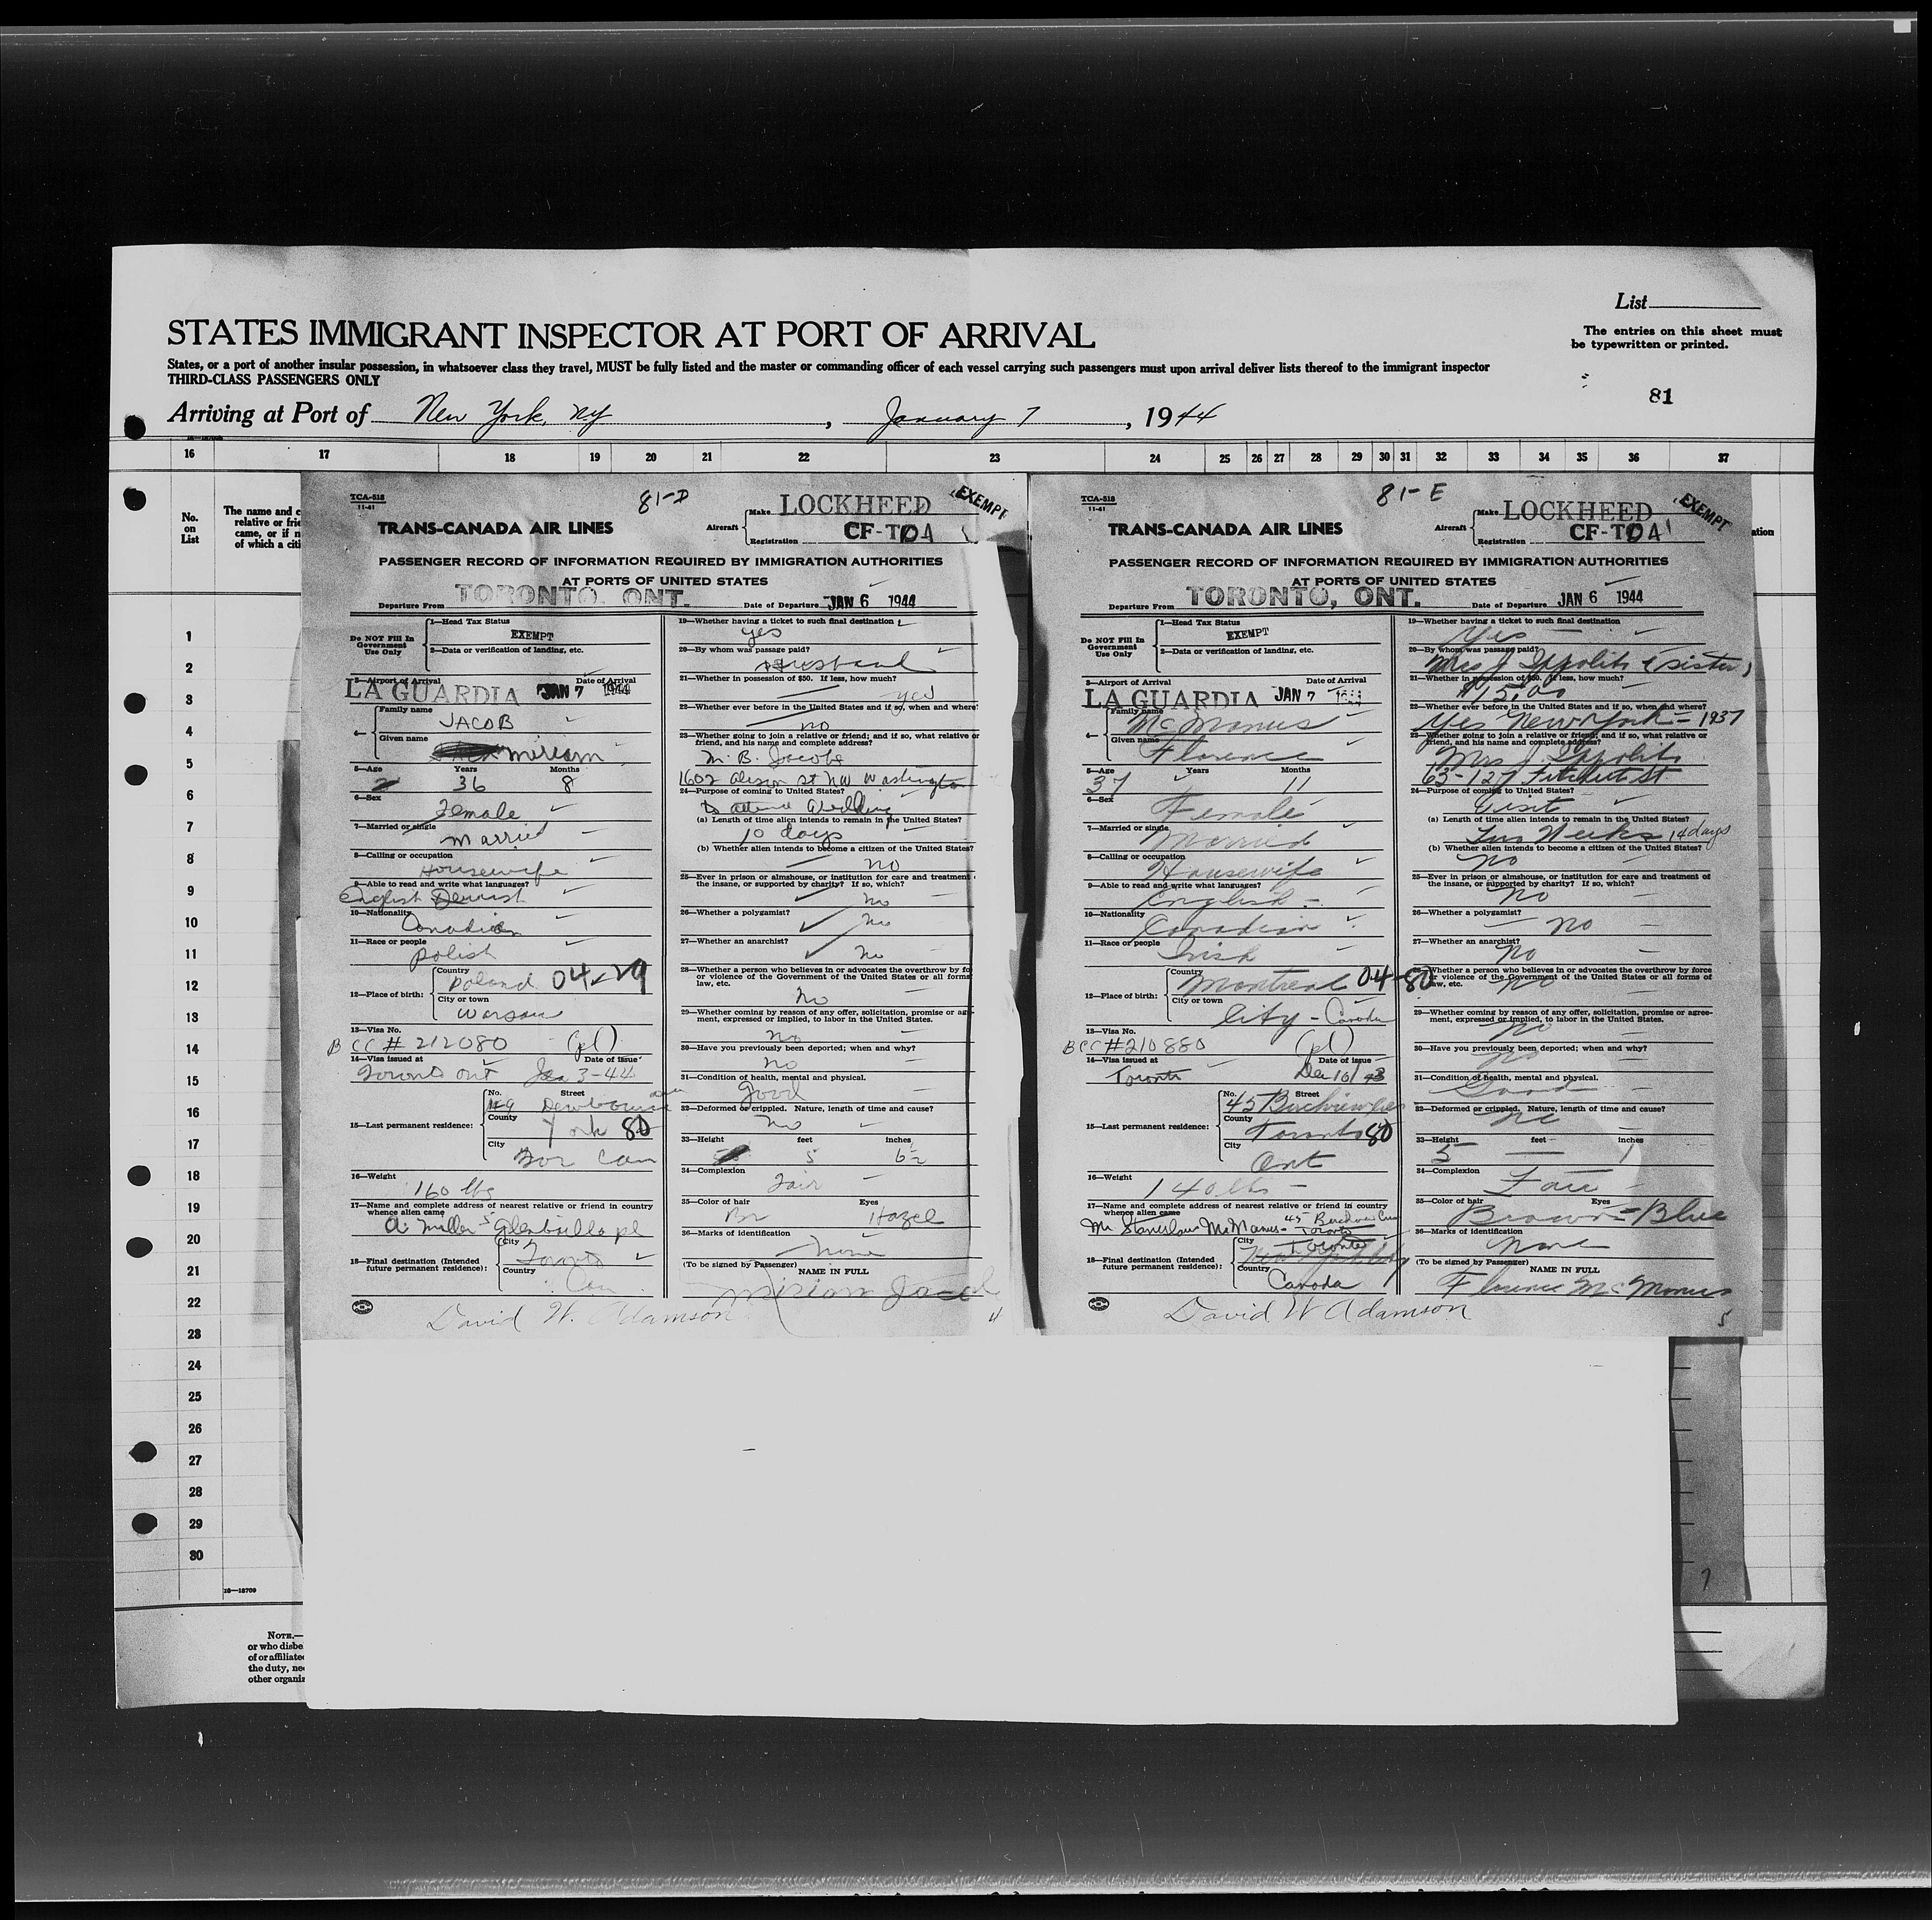 List
STATES IMMIGRANT INSPECTOR AT PORT OF ARRIVAL
The entries on this sheet must
be typewritten or printed.
States, or a port of another insular possession, in whatsoever class they travel, MUST be fully listed and the master or commanding officer of each vessel carrying such passengers must upon arrival deliver lists thereof to the immigrant inspector
THIRD-CLASS PASSENGERS ONLY
81
Arriving at Port of New York, NY, January 7, 1944
16 17 18 19 20 21 22 23 24 25 26 27 28 29 30 31 32 33 34 35 36 37
No.
on
List
The name and c
relative or frie
came, or if n
of which a citi
ation
1
2
3
4
5
6
7
8
9
10
11
12
13
14
15
16
17
18
19
20
21
22
23
24
25
26
27
28
29
30
16—18709
NOTE.—
or who disbe
of or affiliate
the duty, ne
other organiz
TCA-518
11-41
81-D
EXEMPT
TRANS-CANADA AIR LINES
Aircraft
Make LOCKHEED
Registration CF-TOA
PASSENGER RECORD OF INFORMATION REQUIRED BY IMMIGRATION AUTHORITIES
AT PORTS OF UNITED STATES
Departure From TORONTO, ONT. Date of Departure JAN 6 1944
Do NOT Fill In
Government
Use Only
1—Head Tax Status
EXEMPT
2—Data or verification of landing, etc.
3—Airport of Arrival Date of Arrival
LA GUARDIA JAN 7 1944
4— Family name
JACOB
Given name
Miriam
5—Age Years Months
36 8
6—Sex
Female
7—Married or single
Married
8—Calling or occupation
Housewife
9—Able to read and write what languages?
English
10—Nationality
Canadian
11—Race or people
Polish
12—Place of birth:
Country
Poland 04-29
City or town
Warsaw
13—Visa No.
BCC # 212080 (pl)
14—Visa issued at Date of issue
Toronto Ont Jan 3-44
15—Last permanent residence:
No. Street
County
York 80
City
Tor Can
16—Weight
160 lbs
17—Name and complete address of nearest relative or friend in country
whence alien came
A. Miller 5 pl
18—Final destination (Intended
future permanent residence):
City
Toronto
Country
Can
19—Whether having a ticket to such final destination
yes
20—By whom was passage paid?
Husband
21—Whether in possession of $50. If less, how much?
yes
22—Whether ever before in the United States and if so, when and where?
no
23—Whether going to join a relative or friend; and if so, what relative or
friend, and his name and complete address?
M. B. Jacobs
1602 St NW Washington
24—Purpose of coming to United States?
to attend Wedding
(a) Length of time alien intends to remain in the United States?
10 days
(b) Whether alien intends to become a citizen of the United States?
no
25—Ever in prison or almshouse, or institution for care and treatment
the insane, or supported by charity? If so, which?
no
26—Whether a polygamist?
No
27—Whether an anarchist?
No
28—Whether a person who believes in or advocates the overthrow by fo
or violence of the Government of the United States or all forms
law, etc.
No
29—Whether coming by reason of any offer, solicitation, promise or ag
ment, expressed or implied, to labor in the United States.
no
30—Have you previously been deported; when and why?
no
31—Condition of health, mental and physical.
Good
32—Deformed or crippled. Nature, length of time and cause?
No
33—Height feet inches
5 6½
34—Complexion
Fair
35—Color of hair Eyes
Br Hazel
36—Marks of identification
None
(To be signed by Passenger) NAME IN FULL
Miriam Jacob
David W. Adamson
4
TCA-518
11-41
81-E
EXEMPT
TRANS-CANADA AIR LINES
Aircraft
Make LOCKHEED
Registration CF-TOA
PASSENGER RECORD OF INFORMATION REQUIRED BY IMMIGRATION AUTHORITIES
AT PORTS OF UNITED STATES
Departure From TORONTO, ONT. Date of Departure JAN 6 1944
Do NOT Fill In
Government
Use Only
1—Head Tax Status
EXEMPT
2—Data or verification of landing, etc.
3—Airport of Arrival Date of Arrival
LA GUARDIA JAN 7 1944
4— Family name
McManus
Given name
Florence
5—Age Years Months
37 11
6—Sex
Female
7—Married or single
Married
8—Calling or occupation
Housewife
9—Able to read and write what languages?
English
10—Nationality
Canadian
11—Race or people
Irish
12—Place of birth:
Country
Montreal 04-80
City or town
City - Canada
13—Visa No.
BCC #210880 (pl)
14—Visa issued at Date of issue
Toronto Dec 16/43
15—Last permanent residence:
No. Street
45 Birchview Cres
County
Toronto 80
City
Ont
16—Weight
140 lbs
17—Name and complete address of nearest relative or friend in country
whence alien came
Mr Stanislaus McManus - 45 Birchview Cres Toronto
18—Final destination (Intended
future permanent residence):
City
Toronto
Country
Canada
19—Whether having a ticket to such final destination
Yes
20—By whom was passage paid?
Mrs J Ippolito (sister)
21—Whether in possession of $50. If less, how much?
$15.00
22—Whether ever before in the United States and if so, when and where?
Yes New York - 1937
23—Whether going to join a relative or friend; and if so, what relative or
friend, and his name and complete address?
Mrs J Ippolito
63-127 St
24—Purpose of coming to United States?
Visit
(a) Length of time alien intends to remain in the United States?
Two Weeks 14 days
(b) Whether alien intends to become a citizen of the United States?
No
25—Ever in prison or almshouse, or institution for care and treatment of
the insane, or supported by charity? If so, which?
No
26—Whether a polygamist?
No
27—Whether an anarchist?
No
28—Whether a person who believes in or advocates the overthrow by force
or violence of the Government of the United States or all forms of
law, etc.
No
29—Whether coming by reason of any offer, solicitation, promise or agree-
ment, expressed or implied, to labor in the United States.
No
30—Have you previously been deported; when and why?
No
31—Condition of health, mental and physical.
Good
32—Deformed or crippled. Nature, length of time and cause?
No
33—Height feet inches
5 1
34—Complexion
Fair
35—Color of hair Eyes
Brown - Blue
36—Marks of identification
None
(To be signed by Passenger) NAME IN FULL
Florence McManus
David W Adamson
5
7